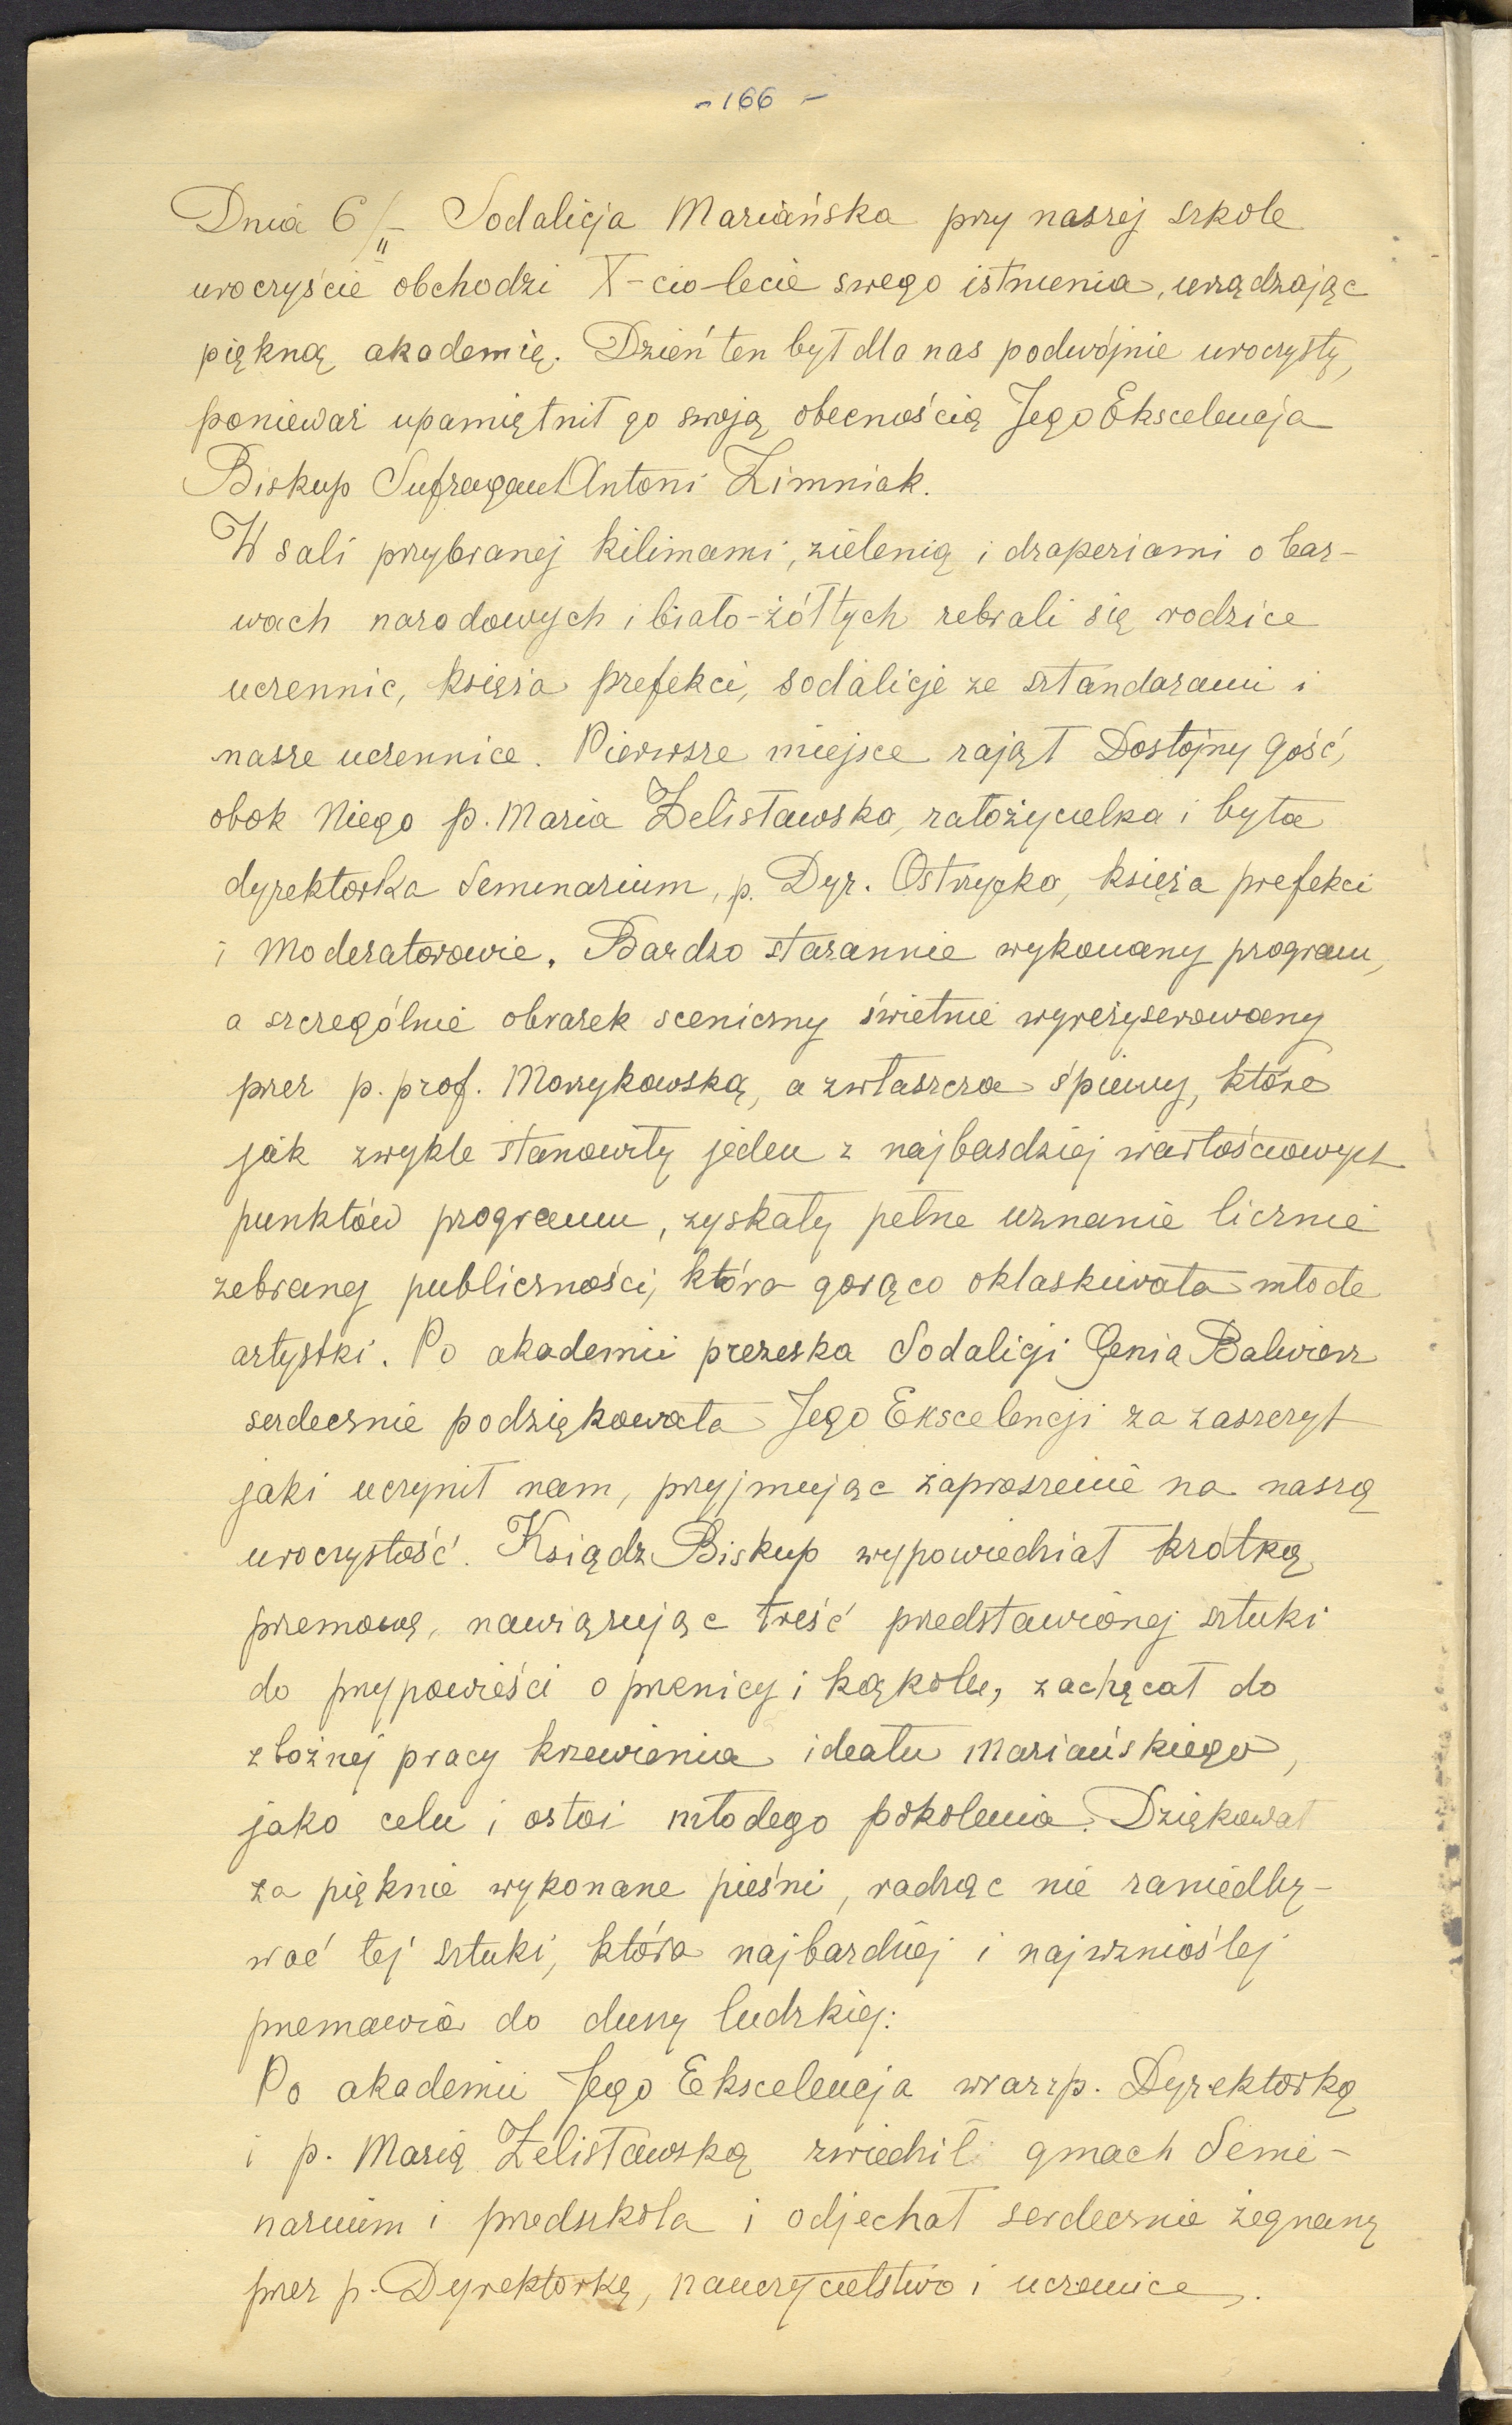 - 166 -
Dnia 6/II - Sodalicja Mariańska przy naszej szkole
uroczyście obchodzi X-cio-lecie swego istnienia, urządzając
piękną akademię. Dzień ten był dla nas podwójnie uroczysty,
ponieważ upamiętnił go swoją obecnością Jego Ekscelencja
Biskup Sufragan Antoni Zimniak.
W sali przybranej kilimami, zielenią i draperiami o bar-
wach narodowych i biało-żółtych zebrali się rodzice
uczennic, księża prefekci, sodalicje ze sztandarami i
nasze uczennice. Pierwsze miejsce zajął Dostojny Gość,
obok Niego p. Maria Żelisławska, założycielka i była
dyrektorka Seminarium, p. Dyr. Ostrzycka, księża prefekci
i Moderatorowie. Bardzo starannie wykonany program,
a szczególnie obrazek sceniczny świetnie wyreżyserowany
przez p. prof. Morzykowską, a zwłaszcza śpiewy, które
jak zwykle stanowiły jeden z najbardziej wartościowych
punktów programu, zyskały pełne uznanie licznie
zebranej publiczności, która gorąco oklaskiwała młode
artystki. Po akademii prezeska Sodalicji Genia Balwierz
serdecznie podziękowała Jego Ekscelencji za zaszczyt
jaki uczynił nam, przyjmując zaproszenie na naszą
uroczystość. Ksiądz Biskup wypowiedział krótką
przemowę, nawiązując treść przedstawionej sztuki
do przypowieści o pszenicy i kąkolu, zachęcał do
zbożnej pracy krzewienia ideału Mariańskiego,
jako celu i ostoi młodego pokolenia. Dziękował
za pięknie wykonane pieśni, radząc nie zaniedby-
wać tej sztuki, która najbardziej i najwznioślej
przemawia do duszy ludzkiej.
Po akademii Jego Ekscelencja wraz z p. Dyrektorką
i p. Marią Żelisławską zwiedził gmach Semi-
narium i przedszkola i odjechał serdecznie żegnany
przez p. Dyrektorkę, nauczycielstwo i uczennice.